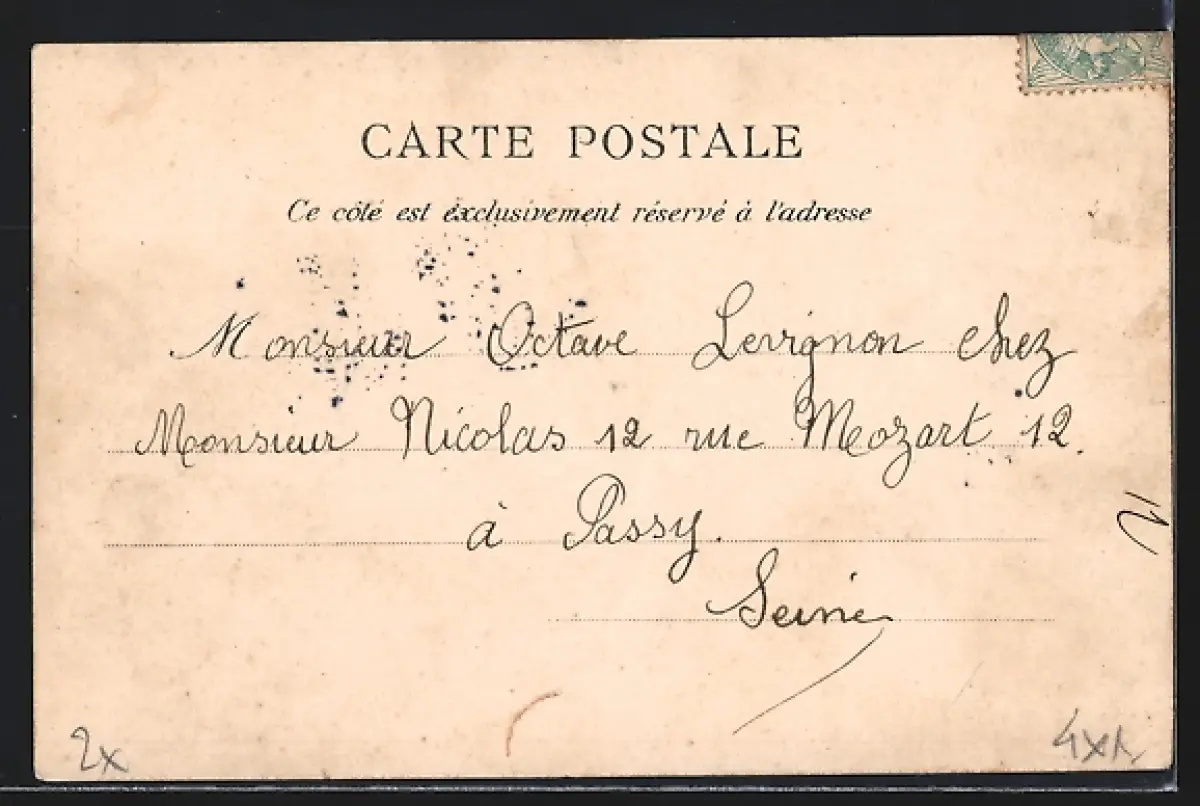 CARTE POSTALE
Ce côté est exclusivement réservé à l'adresse
Monsieur Octave Levrignon chez
Monsieur Nicolas 12 rue Mozart 12.
à Passy.
Seine
2x